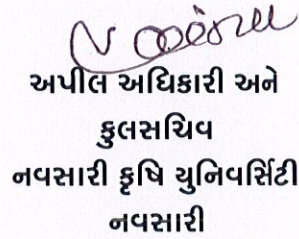 અપીલ અધિકારી અને
કુલસચિવ
નવસારી કૃષિ યુનિવર્સિટી
નવસારી